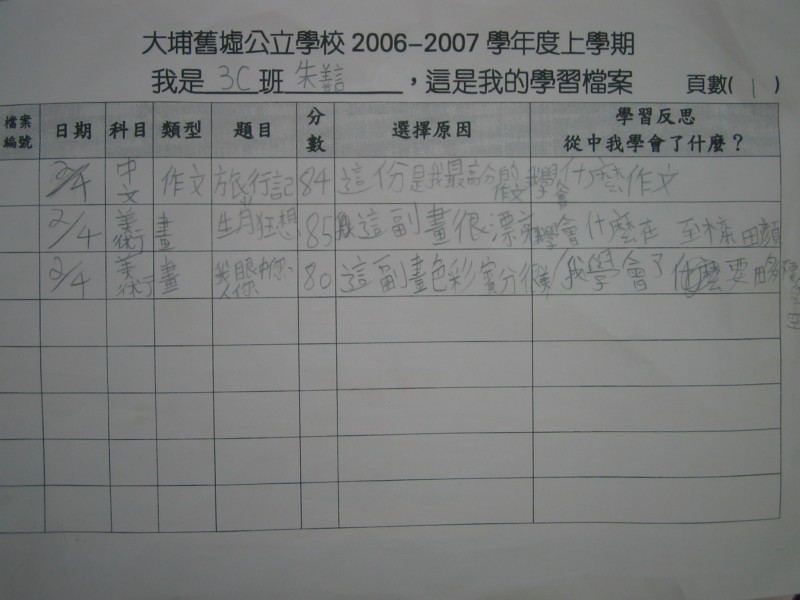 大埔舊墟公立學校 2006-2007 學年度上學期
我是 3C 班 朱 ，這是我的學習檔案 頁數( 1 )
檔案編號 日期 科目 類型 題目 分數 選擇原因 學習反思 從中我學會了什麼？
2/4 中文 作文 旅行記 84 這份是我最高分的作文 我學會什麼作文
2/4 美術 畫 生月狂想 85 這副畫很漂亮 我學會什麼在
2/4 美術 畫 我眼中的你 80 這副畫色彩賓分很美 我學會了什麼要